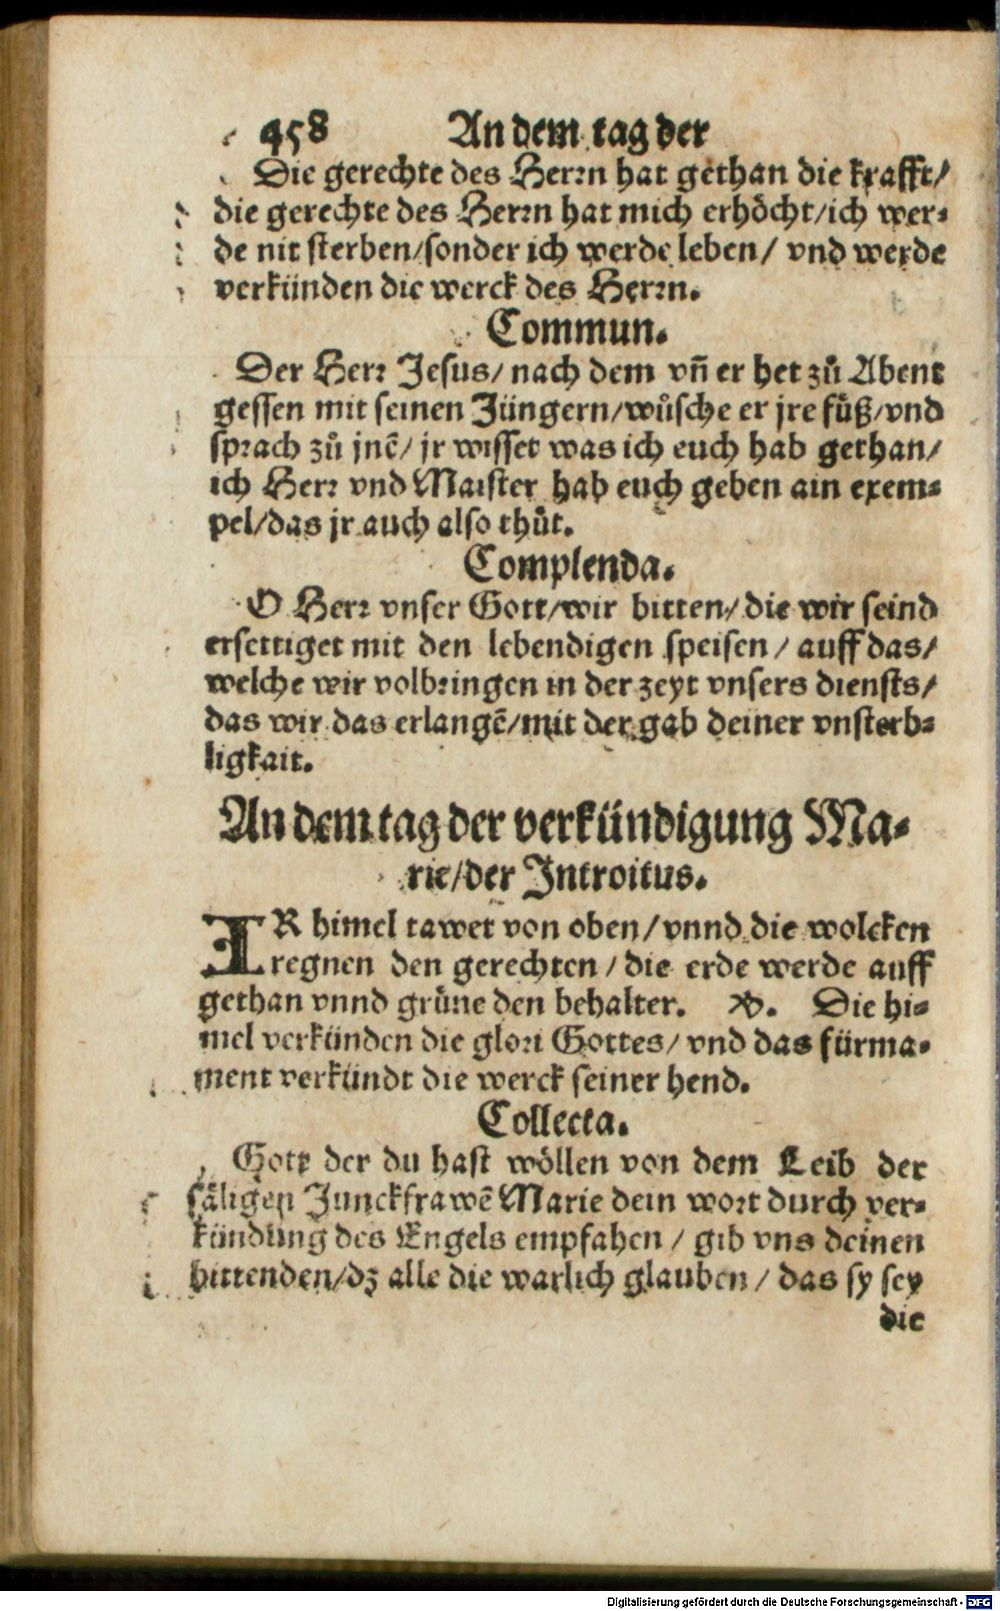 458 An dem tag der
Die gerechte des Herrn hat gethan die krafft/
die gerechte des Herrn hat mich erhöcht/ich wer⸗
de nit sterben/sonder ich werde leben/ vnd werde
verkünden die werck des Herrn.
Commun.
Der Herr Jesus/ nach dem vñ er het zů Abent
gessen mit seinen Jüngern/wůsche er jre fůß/vnd
sprach zů jnē/ jr wisset was ich euch hab gethan/
ich Herr vnd Maister hab euch geben ain exem⸗
pel/das jr auch also thůt.
Complenda.
O Herr vnser Gott/wir bitten/ die wir seind
ersettiget mit den lebendigen speisen/ auff das/
welche wir volbringen in der zeyt vnsers diensts/
das wir das erlangē/mit der gab deiner vnsterb⸗
ligkait.
An dem tag der verkündigung Ma⸗
rie/der Introitus.
IR himel tawet von oben/ vnnd die wolcken
regnen den gerechten/ die erde werde auff
gethan vnnd grüne den behalter. V. Die hi⸗
mel verkünden die glori Gottes/ vnd das fürma⸗
ment verkündt die werck seiner hend.
Collecta.
Gott der du hast wöllen von dem Leib der
säligen Junckfrawē Marie dein wort durch ver⸗
kündung des Engels empfahen/ gib vns deinen
bittenden/dz alle die warlich glauben/ das sy sey
die
Digitalisierung gefördert durch die Deutsche Forschungsgemeinschaft - DFG